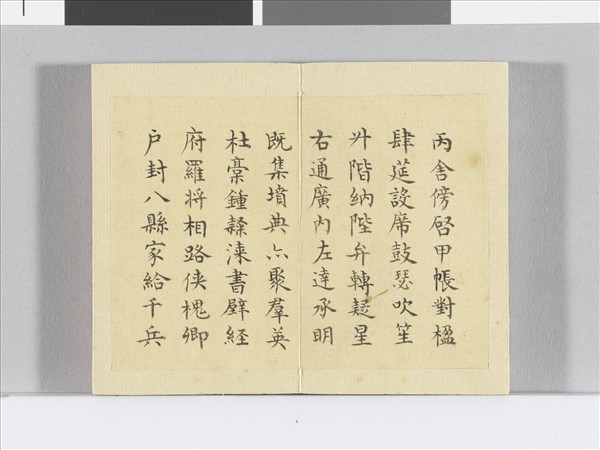 丙舍傍啓甲帳對楹
肆莚設席鼓瑟吹笙
升階納陛弁轉疑星
右通廣內左達承明
既集墳典亦聚羣英
杜稾鍾隸漆書壁経
府羅將相路俠槐卿
戶封八縣家給千兵